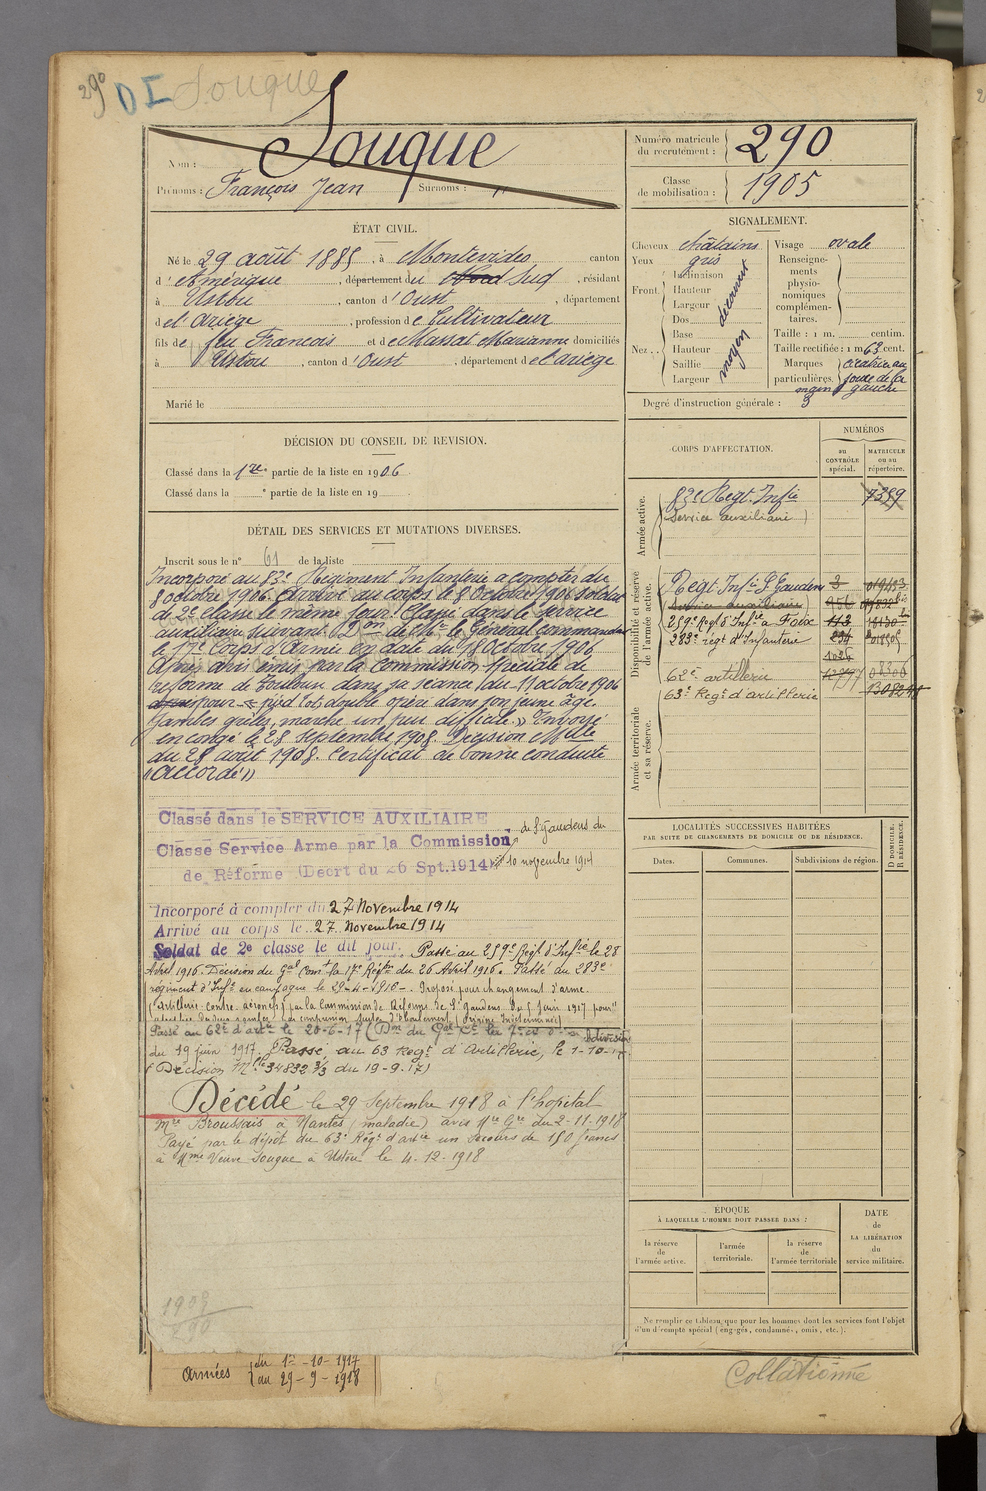 290 DI Souque
Nom : Souque
Prénoms : François Jean Surnoms : "
Numéro matricule du recrutement : 290
Classe de mobilisation : 1905
ÉTAT CIVIL.
Né le 29 août 1885, à Montevideo canton
d'Amérique, département du Nord Sud, résidant
à Ustou, canton d'Oust, département
de l'Ariège, profession de Cultivateur
fils de feu François et de Massat Marianne domiciliés
à Ustou, canton d'Oust, département de l'ariège
Marié le
SIGNALEMENT.
Cheveux châtains
Yeux gris
Front. Inclinaison Hauteur Largeur découvert
Nez . . Dos Base Hauteur Saillie Largeur moyen
Visage ovale
Renseignements physionomiques complémentaires.
Taille : 1 m. centim.
Taille rectifiée : 1 m 63 cent.
Marques particulières. cicatrice au
main gauche
Degré d'instruction générale : 3
DÉCISION DU CONSEIL DE REVISION.
Classé dans la 1re partie de la liste en 1906
Classé dans la e partie de la liste en 19
DÉTAIL DES SERVICES ET MUTATIONS DIVERSES.
Inscrit sous le n° 61 de la liste
Incorporé au 83e Régiment Infanterie a compter du
8 octobre 1906. Arrivé au corps le 8 Octobre 1906 soldat
de 2e classe le même jour. Classé dans le service
auxiliaire suivant Don de Mr le Général commandant
le 17e Corps d'Armée en date du 18 Octobre 1906
Après avis émis par la commission spéciale de
réforme de Toulouse dans sa séance du 11 octobre 1906
pour « pied bots double opéré dans son jeune âge
jambes grêles, marche un peu difficile. » Envoyé
en congé le 28 septembre 1908. Décision Mlle
du 28 août 1908. Certificat de bonne conduite
« accordé »
Classé dans le SERVICE AUXILIAIRE
Classe Service Armé par la Commission de St Gaudens du
de Réforme (Decrt du 26 Spt. 1914) 10 novembre 1914
Incorporé à compter du 27 Novembre 1914
Arrivé au corps le 27 Novembre 1914
Soldat de 2e classe le dit jour. Passé au 259e Régt d'Inf.ie le 28
Avril 1916. Décision du Gal Comt la 17e Région du 26 Avril 1916. Passé au 283e
régiment d'Infie en campagne le 29-4-1916. Proposé pour changement d'arme
(artillerie contre aéronefs) par la Commission de Réforme de St Gaudens du 5 juin 1917 pour
Passé au 62e d'artie le 20-6-17 (Don du Gal Ct la
du 19 juin 1917. Passé au 63 Régt d'Artillerie, le 1-10-17
(Décision Mlle 34832 3/3 du 19-9-17)
Décédé le 29 Septembre 1918 à l'hôpital
mre Broussais à Nantes (maladie) avis Mre Gre du 2-11-1918
Payé par le dépôt du 63e Régt d'artie un secours de 150 francs
à Mme Veuve Souque à Ustou le 4-12-1918
1909
290
Armées du 1er-10-1917
au 29-9-1918
CORPS D'AFFECTATION.
NUMÉROS
au CONTRÔLE spécial.
MATRICULE ou au répertoire.
Armée active.
83e Regt. Infie 7359
(Service auxiliaire)
Disponibilité et réserve de l'armée active.
Regt Infie St Gaudens 3
(Service auxiliaire)
259e Régt d'Infie a Foix 113
283e régt d'Infanterie
1026
62e artillerie 08306
63e Régt d'artillerie
Armée territoriale et sa réserve.
LOCALITÉS SUCCESSIVES HABITÉES
PAR SUITE DE CHANGEMENTS DE DOMICILE OU DE RÉSIDENCE.
Dates. Communes. Subdivisions de région. D DOMICILE. R RÉSIDENCE.
ÉPOQUE
À LAQUELLE L'HOMME DOIT PASSER DANS :
la réserve de l'armée active.
l'armée territoriale.
la réserve de l'armée territoriale
DATE de LA LIBÉRATION du service militaire.
Ne remplir ce tableau que pour les hommes dont les services font l'objet
d'un décompte spécial (engagés, condamnés, omis, etc.).
Collationné